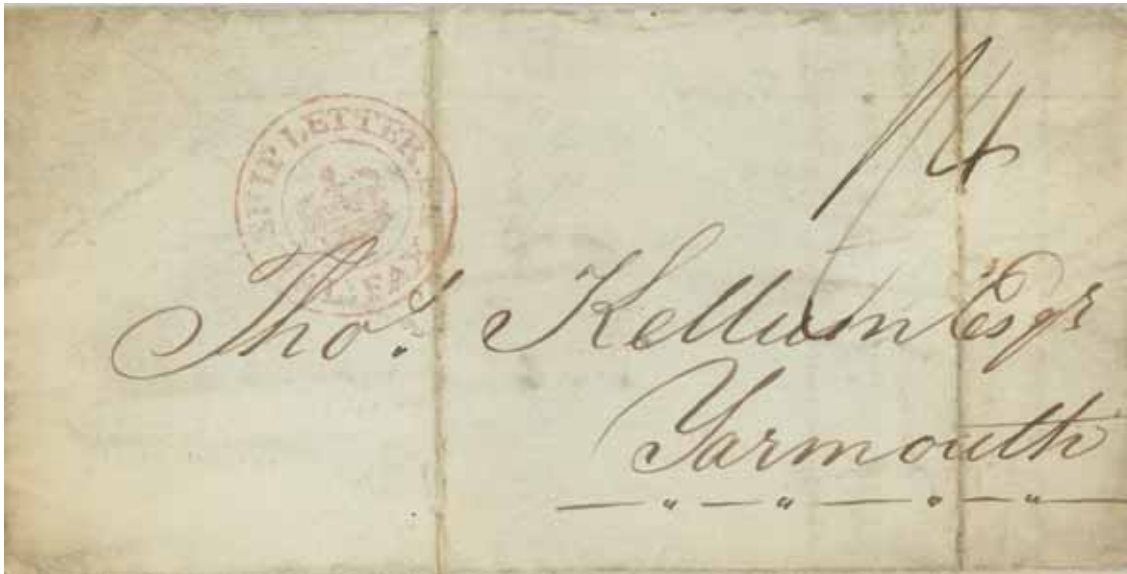 SHIP LETTER.
HALIFAX
1/4
Thos. Kellum Esqr
Yarmouth